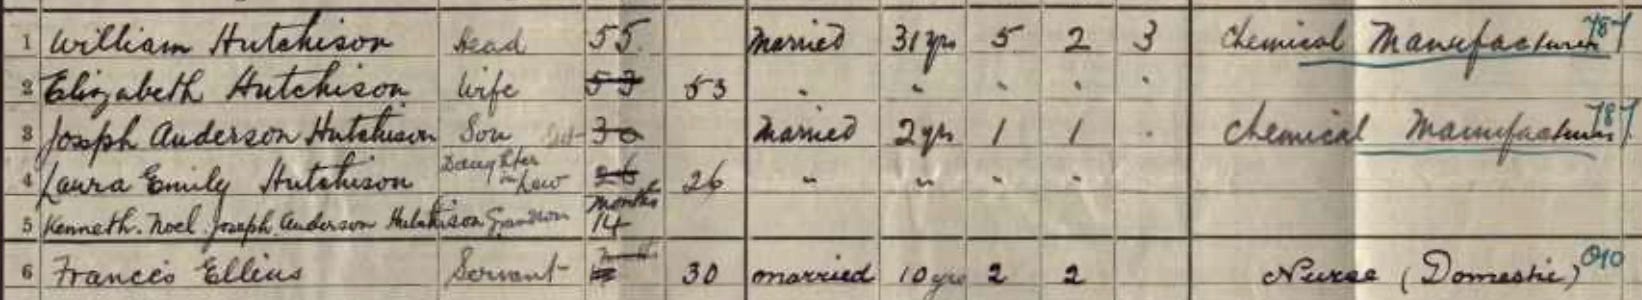 1 William Hutchison Head 55. Married 31 yrs 5 2 3 Chemical Manufacturer 787
2 Elizabeth Hutchison Wife 53 53 " " " " "
3 Joseph Anderson Hutchison Son 30 Married 2 yrs 1 1 . Chemical Manufacturer 787
4 Laura Emily Hutchison Daughter in Law 26 26 " " " "
5 Kenneth. Noel. Joseph Anderson Hutchison Grandson months 14
6 Frances Ellins Servant 30 married 10 yrs 2 2 Nurse (Domestic) 010